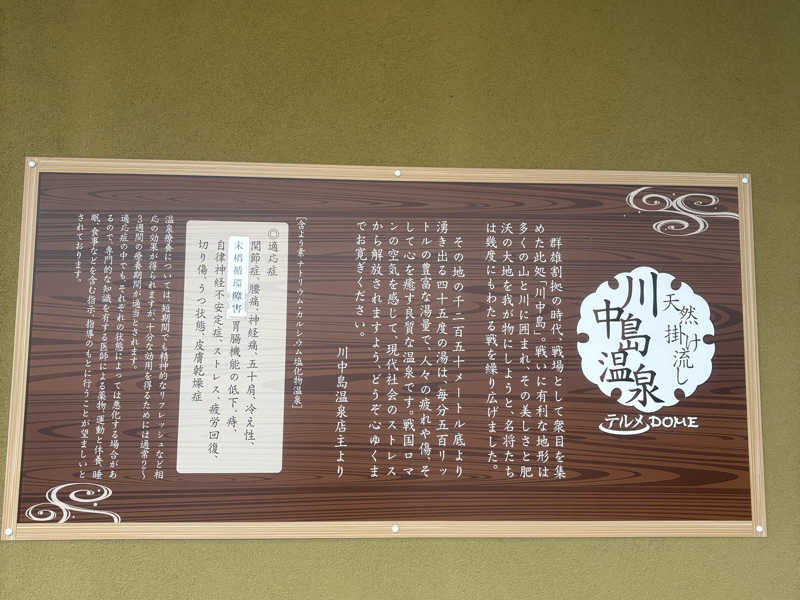 天然
掛け流し
川中島温泉
テルメDOME
群雄割拠の時代、戦場として衆目を集
めた此処「川中島」。戦いに有利な地形は
多くの山と川に囲まれ、その美しさと肥
沃の大地を我が物にしようと、名将たち
は幾度にもわたる戦を繰り広げました。
その地の千二百五十メートル底より
湧き出る四十五度の湯は、毎分五百リッ
トルの豊富な湯量で、人々の疲れや傷、そ
して心を癒す良質な温泉です。戦国ロマ
ンの空気を感じて、現代社会のストレス
から解放されますよう、どうぞ心ゆくま
でお寛ぎください。
川中島温泉店主より
[含よう素-ナトリウム・カルシウム塩化物温泉]
◎適応症
関節症、腰痛、神経痛、五十肩、冷え性、
末梢循環障害、胃腸機能の低下、痔、
自律神経不安定症、ストレス、疲労回復、
切り傷、うつ状態、皮膚乾燥症
温泉療養については、短期間でも精神的なリフレッシュなど相
応の効果が得られますが、十分な効用を得るためには通常2~
3週間の療養期間が適当とされます。
適応症の中でも、それぞれの状態によっては悪化する場合があ
るので、専門的な知識を有する医師による薬物、運動と休養、睡
眠、食事などを含む指示、指導のもとに行うことが望ましいと
されております。